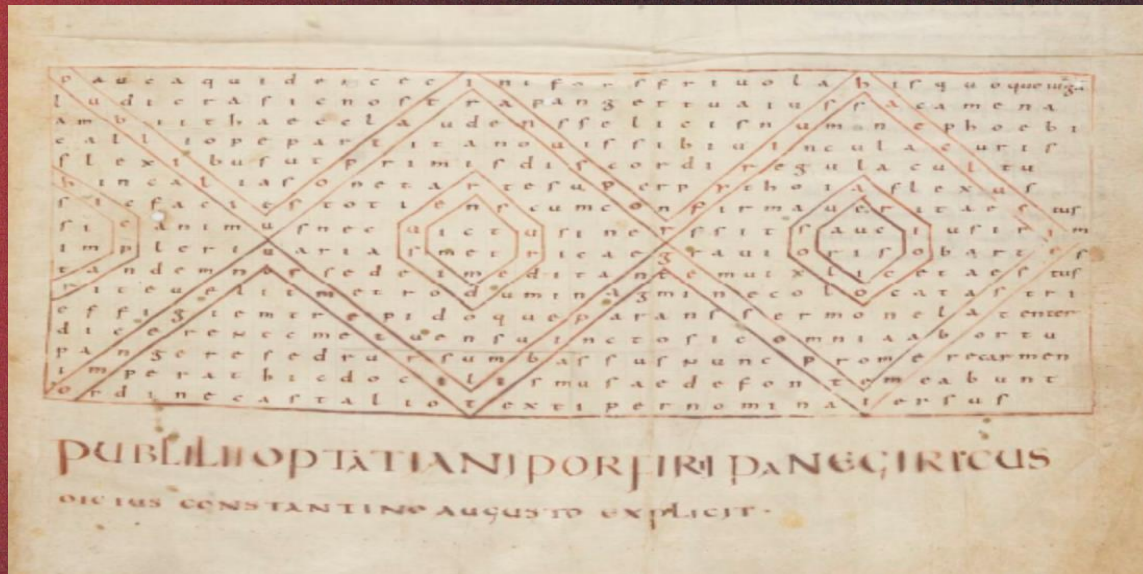 paucaquidemceciniforsfriuolahisquoqueiuga
ludicrasienostrapangettuaiussacamena
ambiithaecelaudensselicisnumnephoebi
calliopepartitanouissibiuinculacuris
flexibusutprimisdiscordiregulacultu
hincaliasonetartesuperpythoiaflexus
siefaciestotienscumconfirmaueritaestus
sieanimusnecuictusinerssitsauciusirim
impleriuariasmetricaegrauiorisobartes
tandemnorsedeimeditantemuixlicetaestus
riteuelitmetroduminagminecolocatastri
effigiemtrepidoqueparanssermonelatenter
dicerextemetuensuinctosicomniaabortu
pangeresedrursumbassusnuncpromerecarmen
imperathicdocilismusaedefontemeabunt
ordinecastaliotextipernominauersus
PUBLILIIOPTATIANIPORFIRII PANEGIRICUS
DICTUS CONSTANTINO AUGUSTO EXPLICIT·